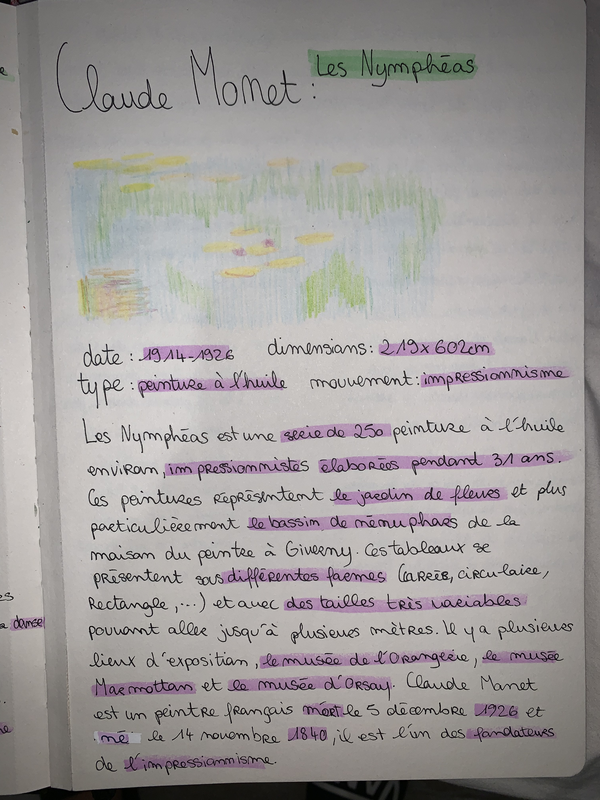 Claude Monet : Les Nymphéas
date : 1914-1926 dimensions : 219 x 602cm
type : peinture à l'huile mouvement : impressionnisme
Les Nymphéas est une série de 250 peinture à l'huile
environ, impressionnistes élaborées pendant 31 ans.
Ces peintures représentent le jardin de fleurs et plus
particulièrement le bassin de nénuphars de la
maison du peintre à Giverny. Ces tableaux se
présentent sous différentes formes (carrés, circulaire,
Rectangle,...) et avec des tailles très variables
pouvant aller jusqu'à plusieurs mètres. Il y a plusieurs
lieux d'exposition, le musée de l'Orangerie, le musée
Marmottan et le musée d'Orsay. Claude Monet
est un peintre français mort le 5 décembre 1926 et
né le 14 novembre 1840, il est l'un des fondateurs
de l'impressionnisme.
danse